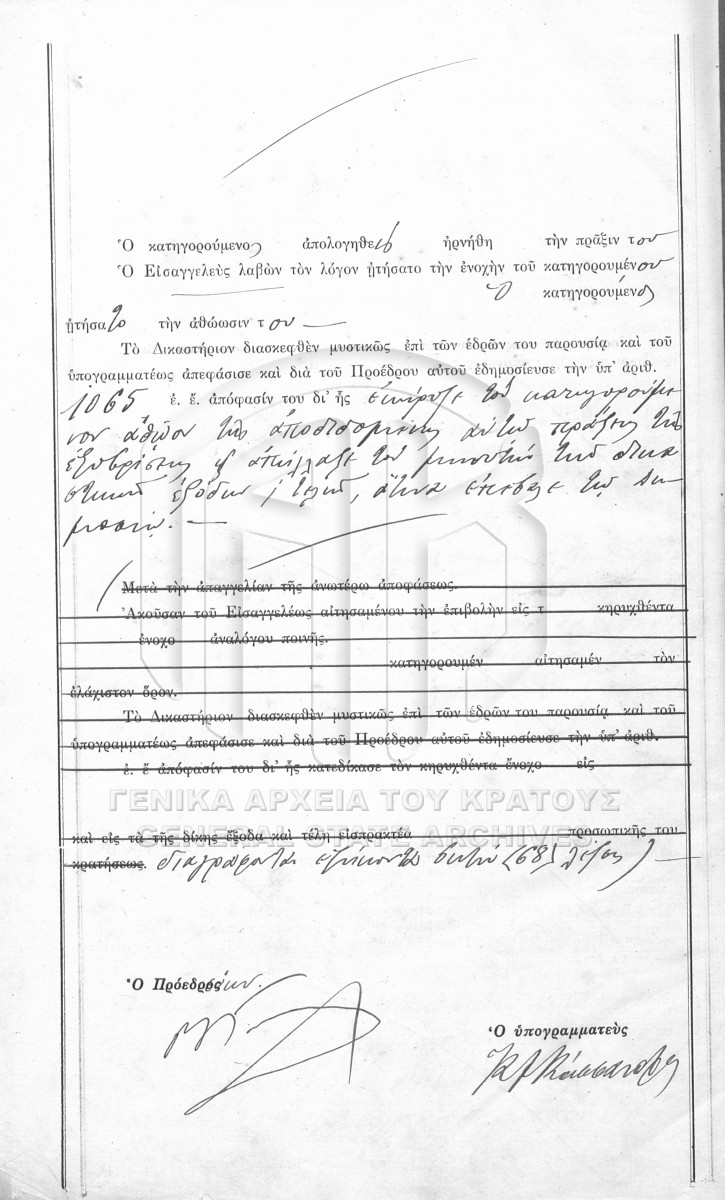 Ὁ κατηγορούμενος ἀπολογηθεὶς ἠρνήθη τὴν πρᾶξιν του
Ὁ Εἰσαγγελεὺς λαβὼν τὸν λόγον ᾐτήσατο τὴν ἐνοχὴν τοῦ κατηγορουμένου
Ὁ κατηγορούμενος
ᾐτήσατο τὴν ἀθώωσίν του
Τὸ Δικαστήριον διασκεφθὲν μυστικῶς ἐπὶ τῶν ἑδρῶν του παρουσίᾳ καὶ τοῦ
ὑπογραμματέως ἀπεφάσισε καὶ διὰ τοῦ Προέδρου αὐτοῦ ἐδημοσίευσε τὴν ὑπ' ἀριθ.
1065 ἐ. ἔ. ἀπόφασίν του δι' ἧς ἐκήρυξε τὸν κατηγορούμε
νον ἀθῶον τῆς ἀποδιδομένης αὐτῷ πράξεως τῆς
ἐξυβρίσεως καὶ ἀπήλλαξε τὸν μηνυτὴν τῶν δικα
στικῶν ἐξόδων καὶ τελῶν, ἅτινα ἐπέβαλε τῷ Δη-
μοσίῳ.
Μετὰ τὴν ἀπαγγελίαν τῆς ἀνωτέρω ἀποφάσεως.
Ἀκοῦσαν τοῦ Εἰσαγγελέως αἰτησαμένου τὴν ἐπιβολὴν εἰς τ κηρυχθέντα
ἔνοχο ἀναλόγου ποινῆς.
κατηγορουμέν αἰτησαμέν τὸν
ἐλάχιστον ὅρον.
Τὸ Δικαστήριον διασκεφθὲν μυστικῶς ἐπὶ τῶν ἑδρῶν του παρουσίᾳ καὶ τοῦ
ὑπογραμματέως ἀπεφάσισε καὶ διὰ τοῦ Προέδρου αὐτοῦ ἐδημοσίευσε τὴν ὑπ' ἀριθ.
ἐ. ἔ ἀπόφασίν του δι' ἧς κατεδίκασε τὸν κηρυχθέντα ἔνοχο εἰς
ΓΕΝΙΚΑ ΑΡΧΕΙΑ ΤΟΥ ΚΡΑΤΟΥΣ
GENERAL STATE ARCHIVES
καὶ εἰς τὰ τῆς δίκης ἔξοδα καὶ τέλη εἰσπρακτέα προσωπικῆς του
κρατήσεως. διαγράφονται ἑξήκοντα ὀκτὼ (68) λέξεις)
Ὁ Πρόεδρος
Ὁ ὑπογραμματεὺς